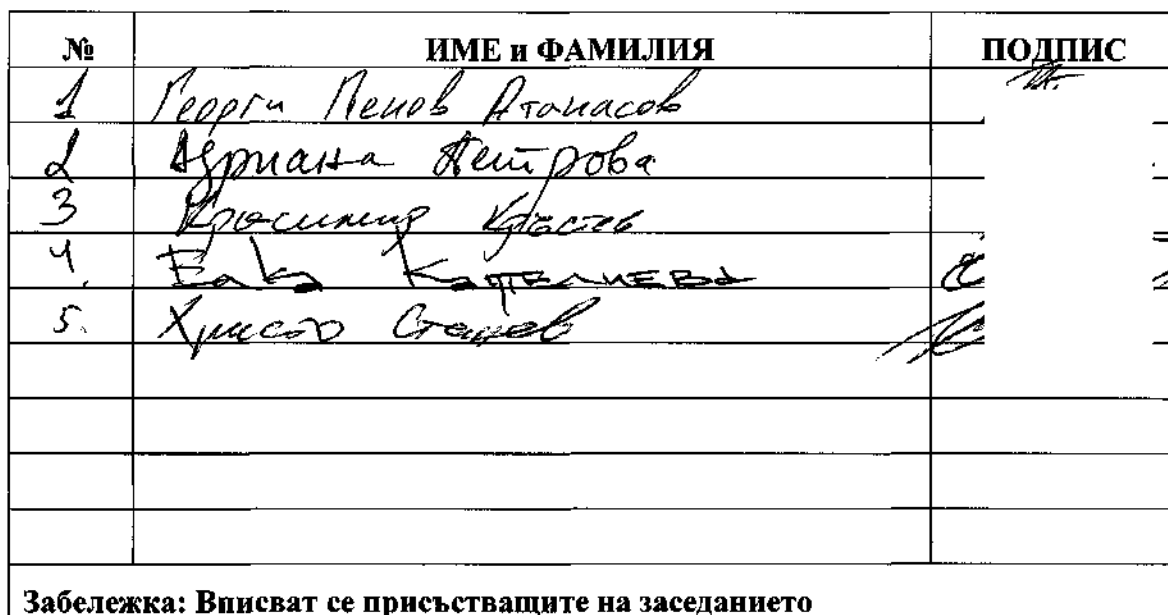 № ИМЕ и ФАМИЛИЯ ПОДПИС
1 Георги Пенов Атанасов
2 Адриана Петрова
3 Красимир Кръстев
4. Елка
5. Христо
Забележка: Вписват се присъстващите на заседанието